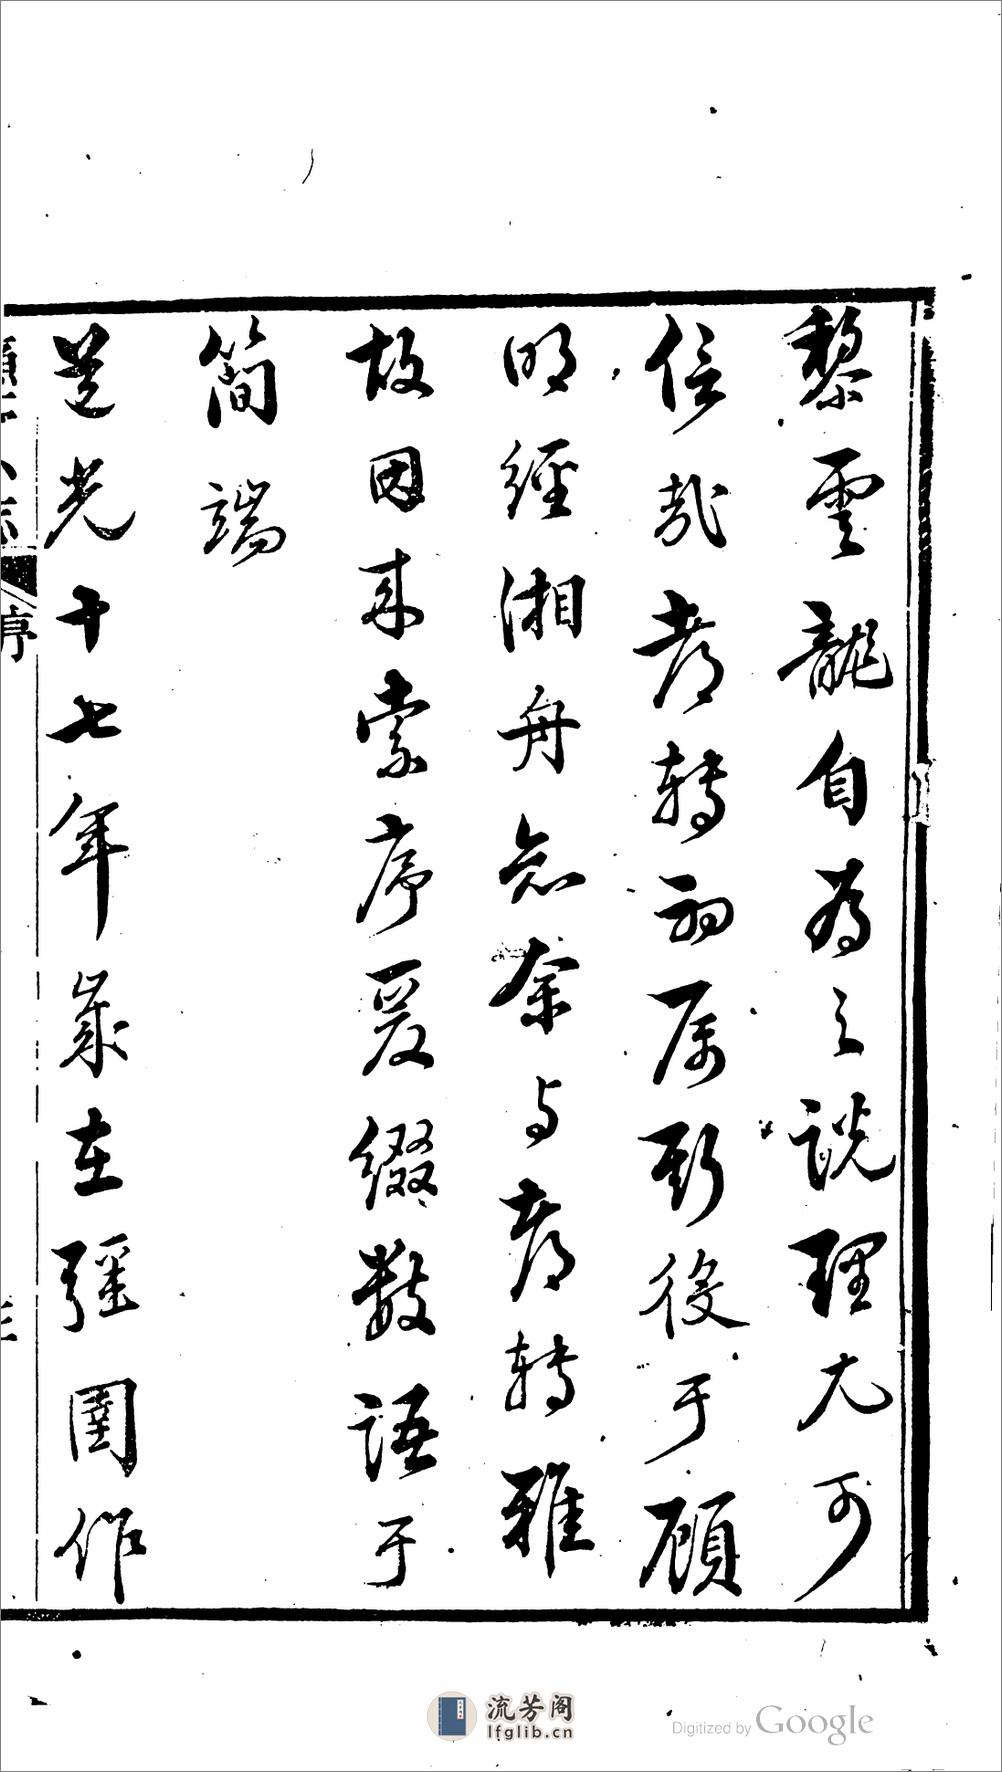 黎雲龍自為之說理尤可
信哉都轉初屬斯役于顧
明經湘舟知余与都轉雅
故因来索序爰綴數語于
簡端
道光十七年歲在彊圉作
亭小志 序 三
流芳阁
lfglib.cn
Digitized by Google